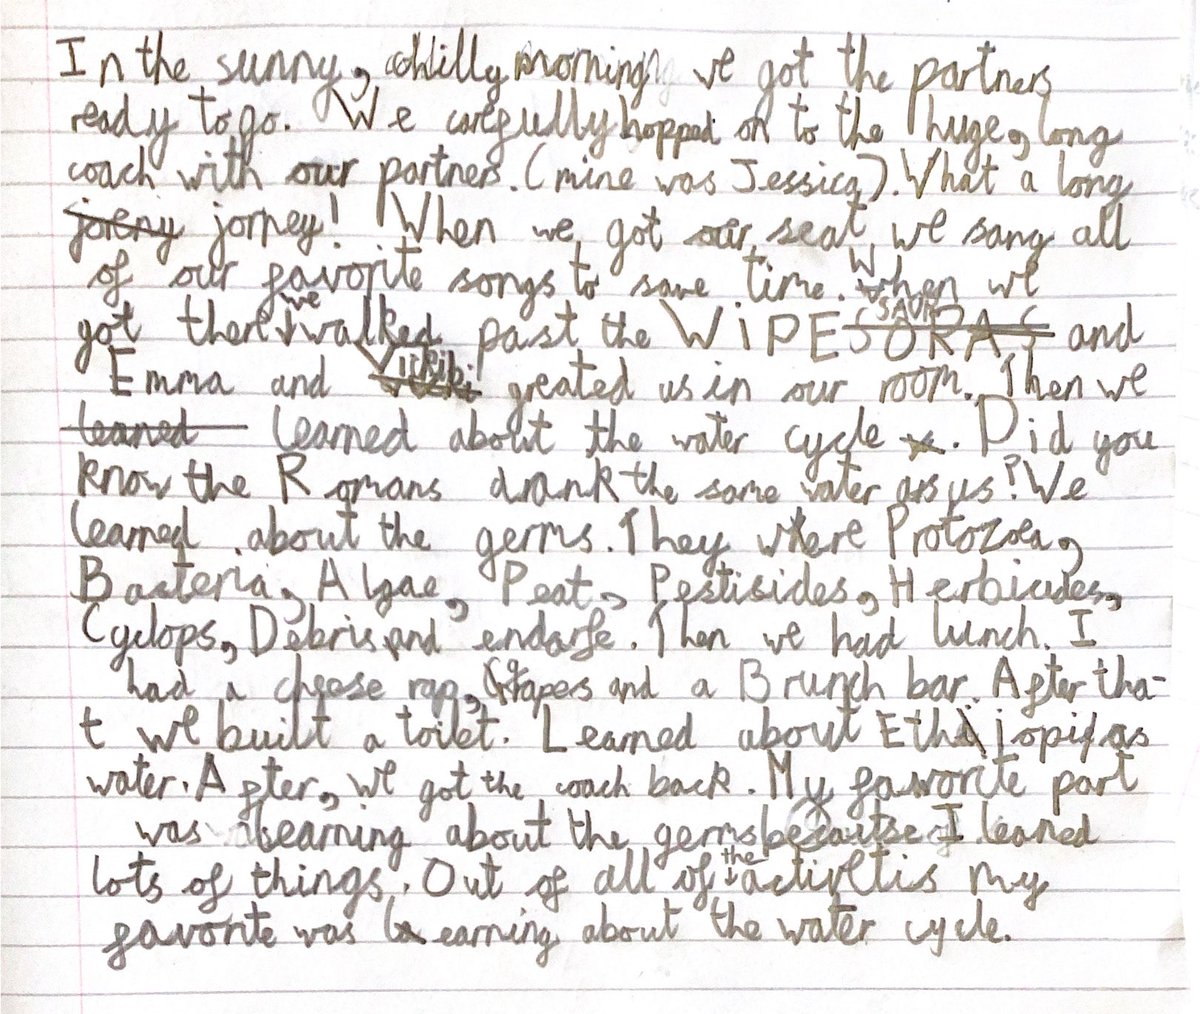 In the sunny, chilly morning we got the partners
ready to go. We carefully hopped on to the huge, long
coach with our partners. (mine was Jessica). What a long
joreny jorney! When we got our seat, we sang all
of our favorite songs to save time. When we
got there we walked past the WiPESAUR and
Emma and Vickiki greated us in our room. Then we
leaned learned about the water cycle. Did you
know the Romans drank the same water as us? We
learned about the germs. They where Protozoea,
Bacteria, Algae, Peat, Pestisides, Herbicides,
Cyclops, Debris and endarfe. Then we had lunch. I
had a cheese rap, Grapers and a Brunch bar. After tha-
t we built a toilet. Learned about Ethijopias
water. After, we got the coach back. My favorite part
was learning about the germs because I leaned
lots of things. Out of all of the activitis my
favorite was learning about the water cycle.